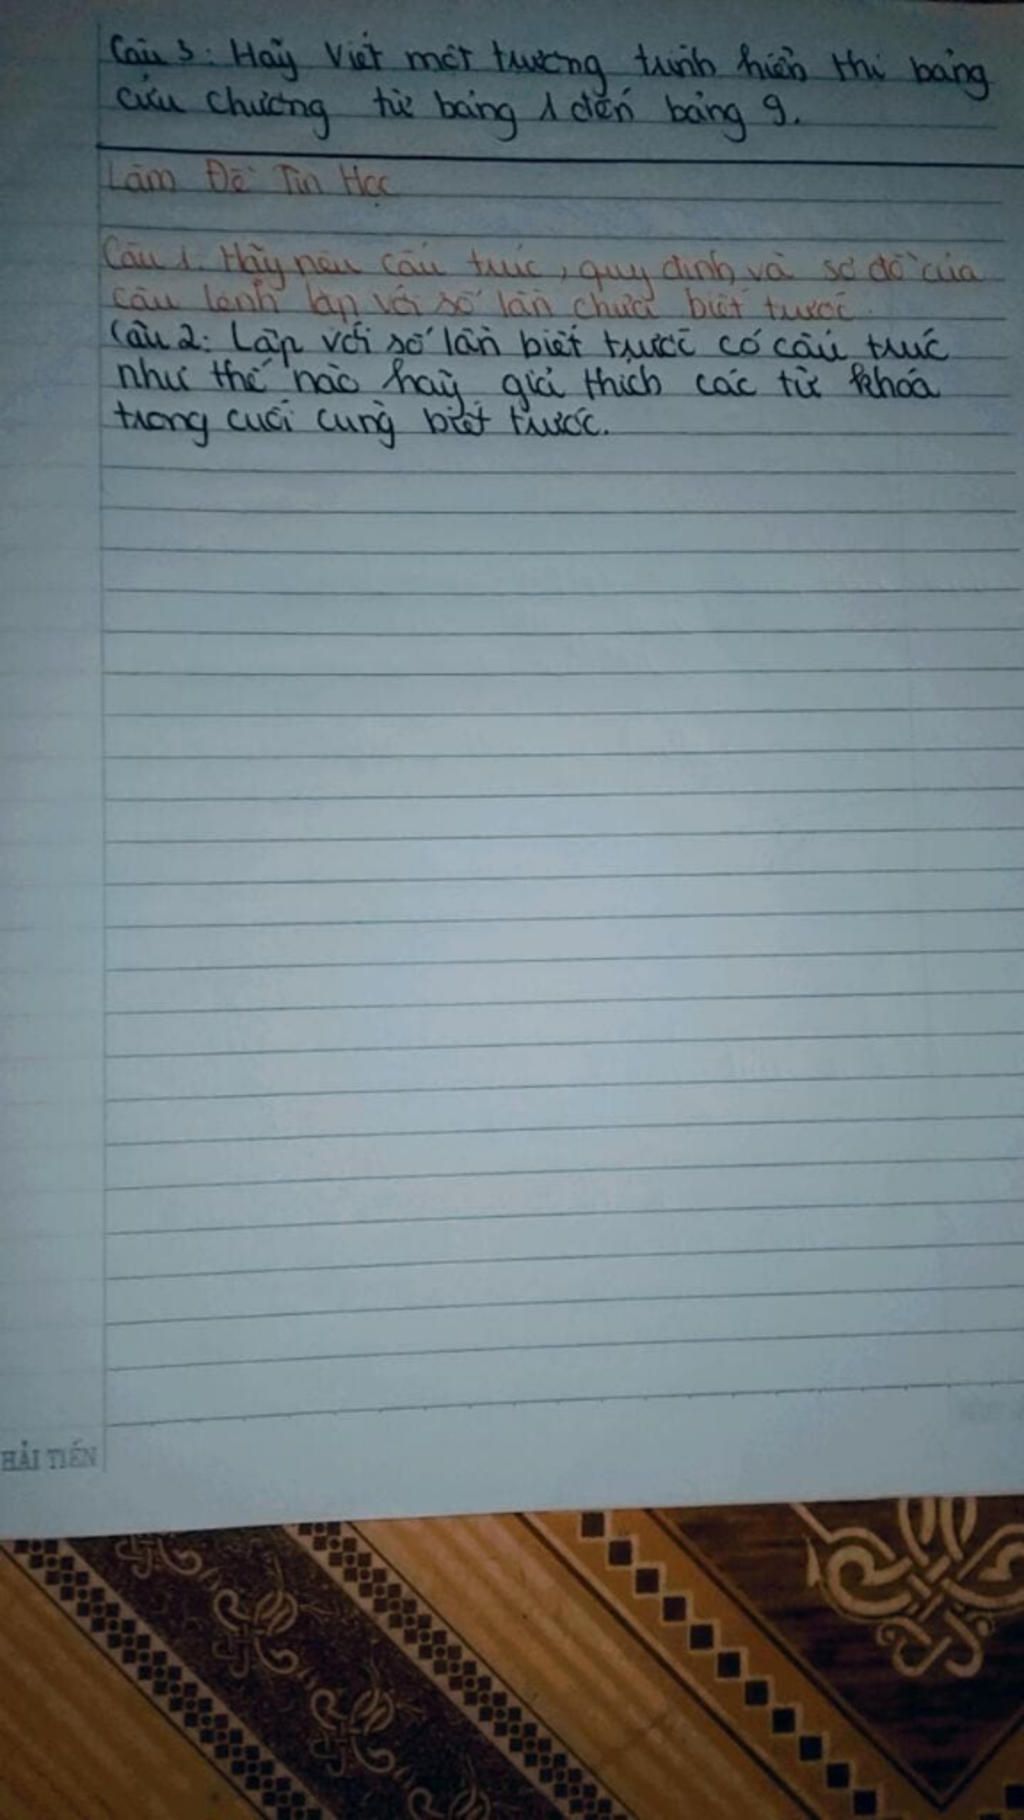 Câu 3: Hãy Viết một trương trình hiển thị bảng
cửu chương từ bảng 1 đến bảng 9.
Làm Đề Tin Học
Câu 1: Hãy nêu cấu trúc, quy định và sơ đồ của
câu lệnh lặp với số lần chưa biết trước.
Câu 2: Lặp với số lần biết trước có cấu trúc
như thế nào hãy giải thích các từ khoá
trong cuối cùng biết trước.
HẢI TIẾN